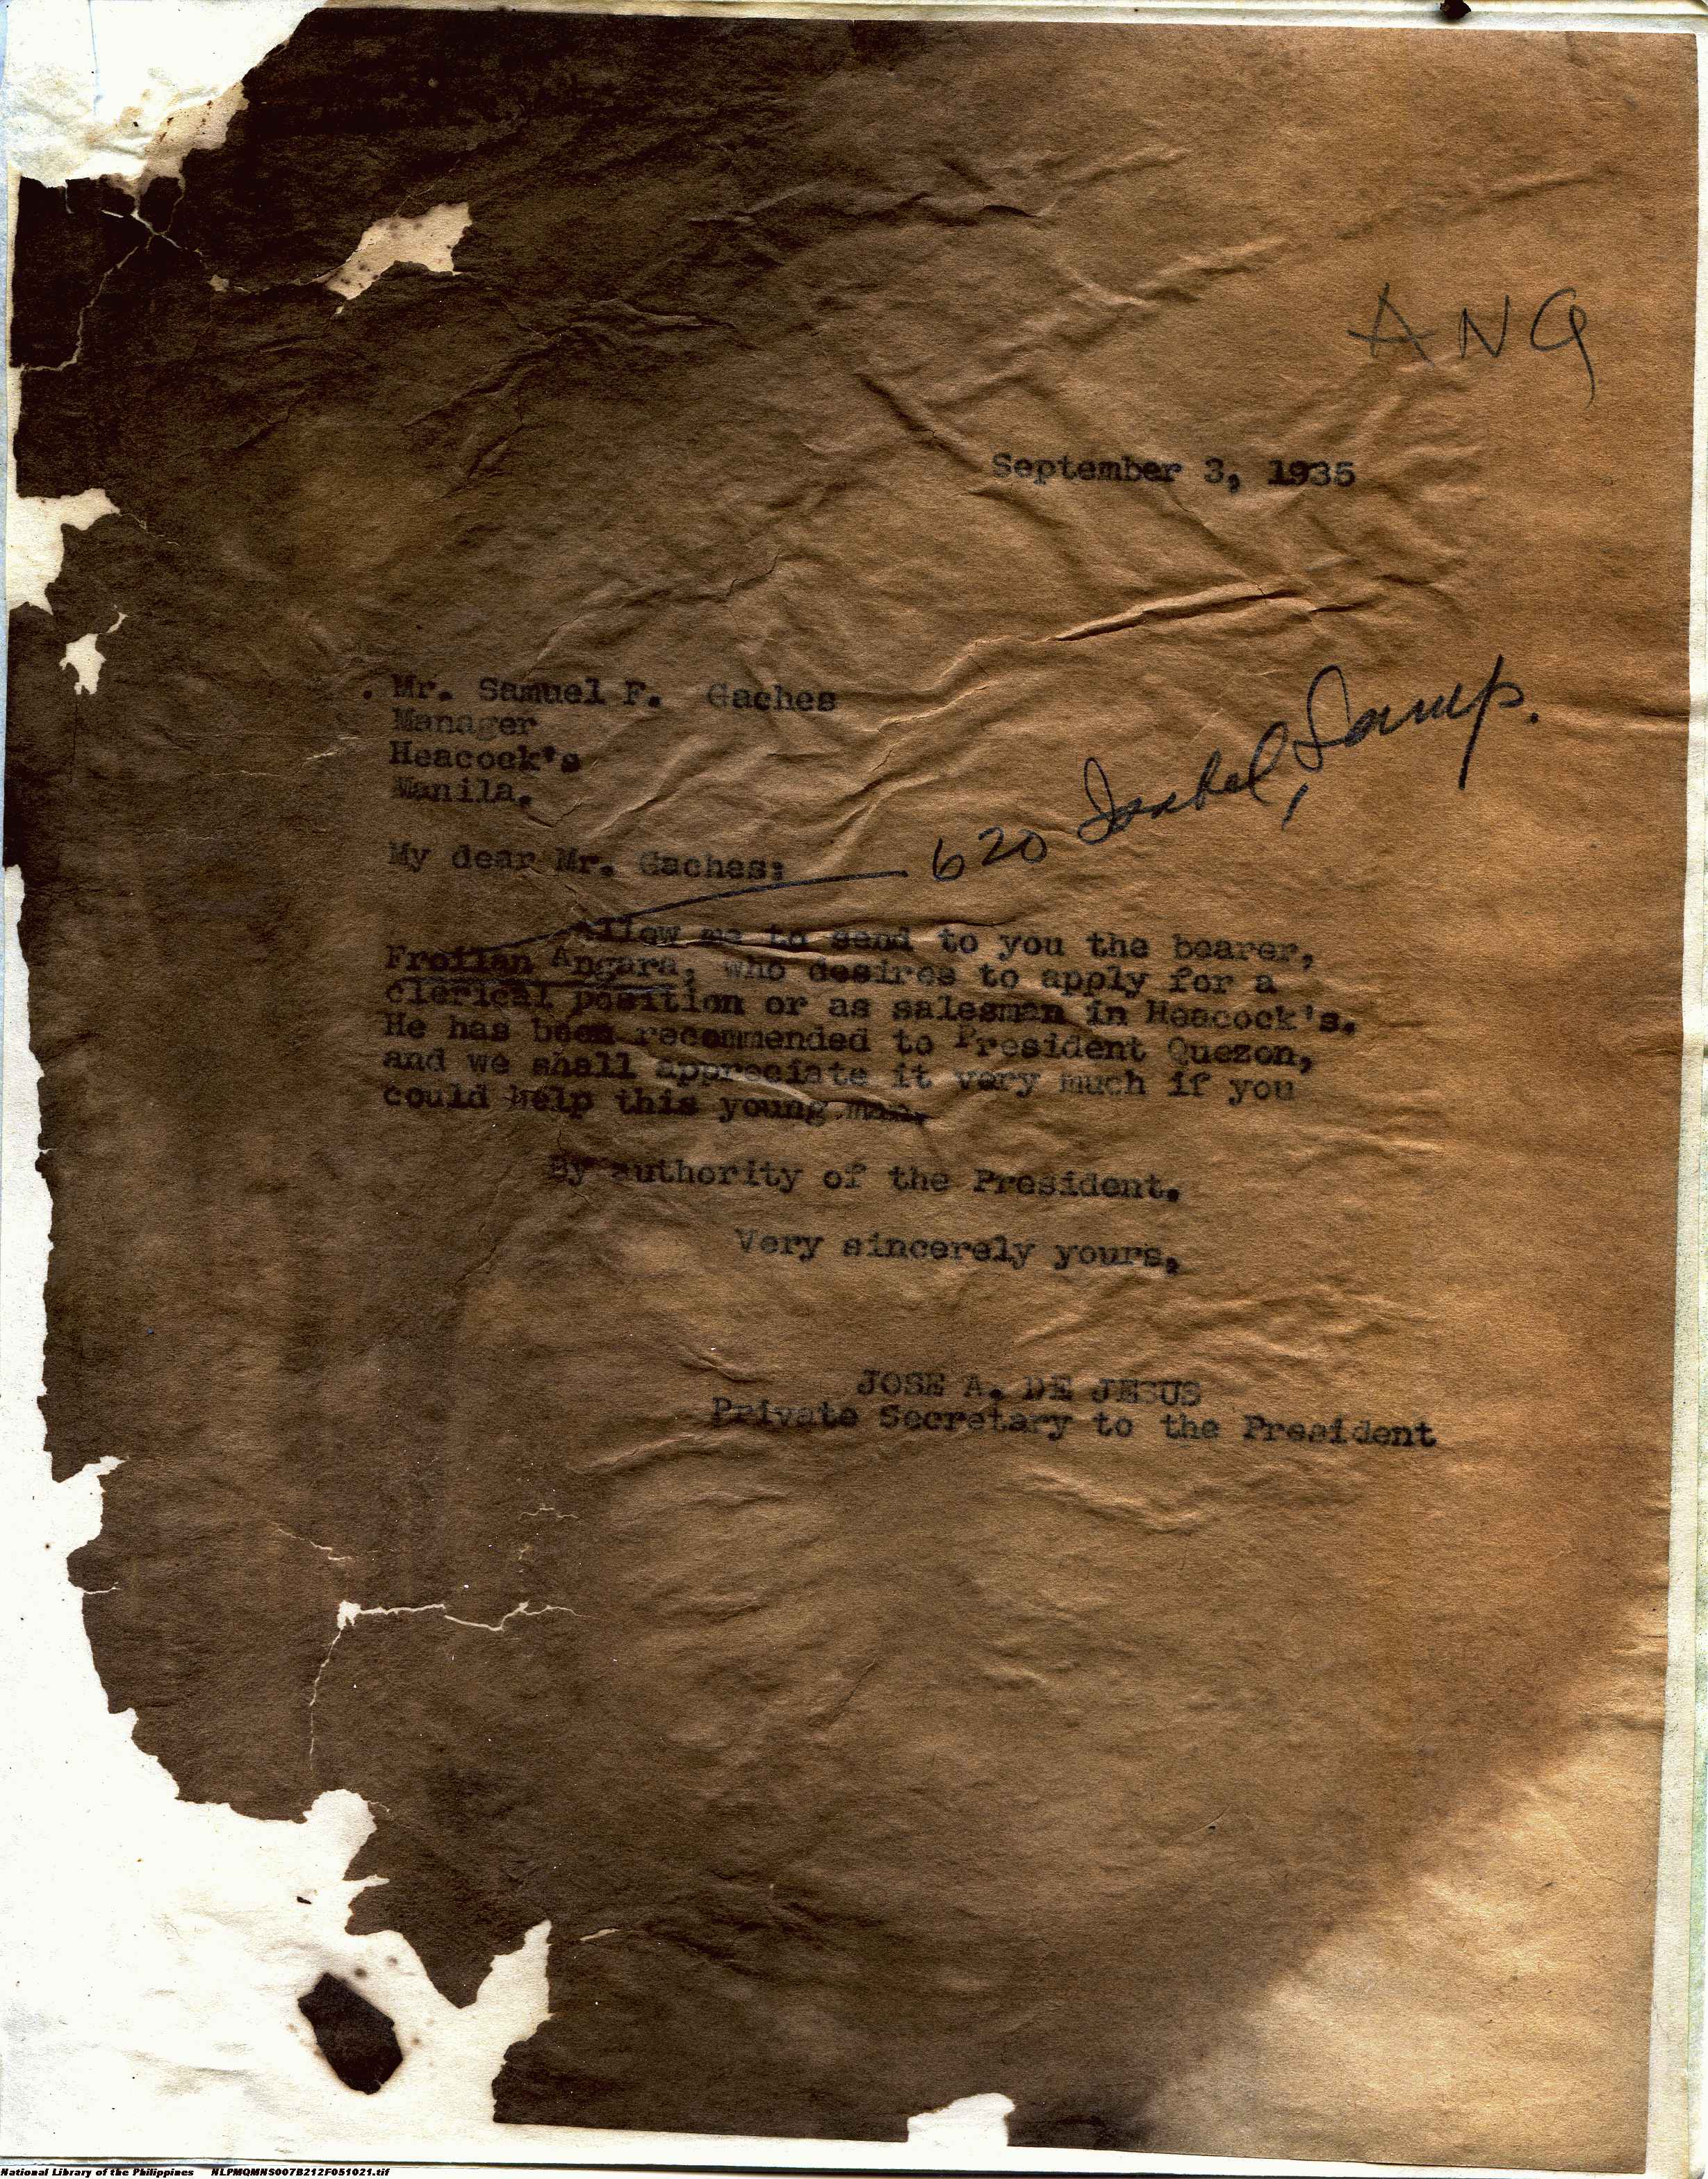 ANG
September 3, 1935
Mr. Samuel F. Gaches
Manager
Heacock's
Manila.
620 Isabel, Samp.
My dear Mr. Gaches:
Allow me to send to you the bearer,
Froilan Angara, who desires to apply for a
clerical position or as salesman in Heacock's.
He has been recommended to President Quezon,
and we shall appreciate it very much if you
could help this young man.
By authority of the President.
Very sincerely yours,
JOSE A. DE JESUS
Private Secretary to the President
National Library of the Philippines NLPMQMNS007B212F051021.tif